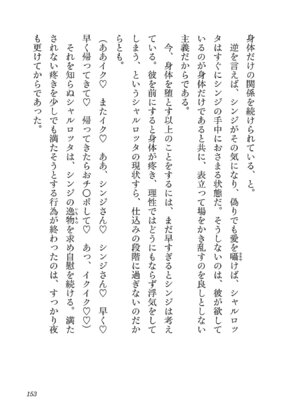 身体だけの関係を続けられている。と。
　逆を言えば、シンジがその気になり、偽りでも愛を囁けば、シャルロッ
タはすぐにシンジの手中におさまる状態だ。そうしないのは、彼が欲して
いるのが身体だけであると共に、表立って場をかき乱すのを良しとしない
主義だからである。
　今、身体を堕とす以上のことをするには、まだ早すぎるとシンジは考え
ている。彼を前にすると身体が疼き、理性ではどうにもならず浮気をして
しまう、というシャルロッタの現状すら、仕込みの段階に過ぎないのだか
らとも。
（ああイク♡　またイク♡　ああ、シンジさん♡　シンジさん♡　早く♡
早く帰ってきて♡　帰ってきたらおチ〇ポして♡　あっ、イクイク♡♡）
　それを知らぬシャルロッタは、シンジの逸物を求め自慰を続ける。満た
されない疼きを少しでも満たそうとする行為が終わったのは、すっかり夜
も更けてからであった。
153